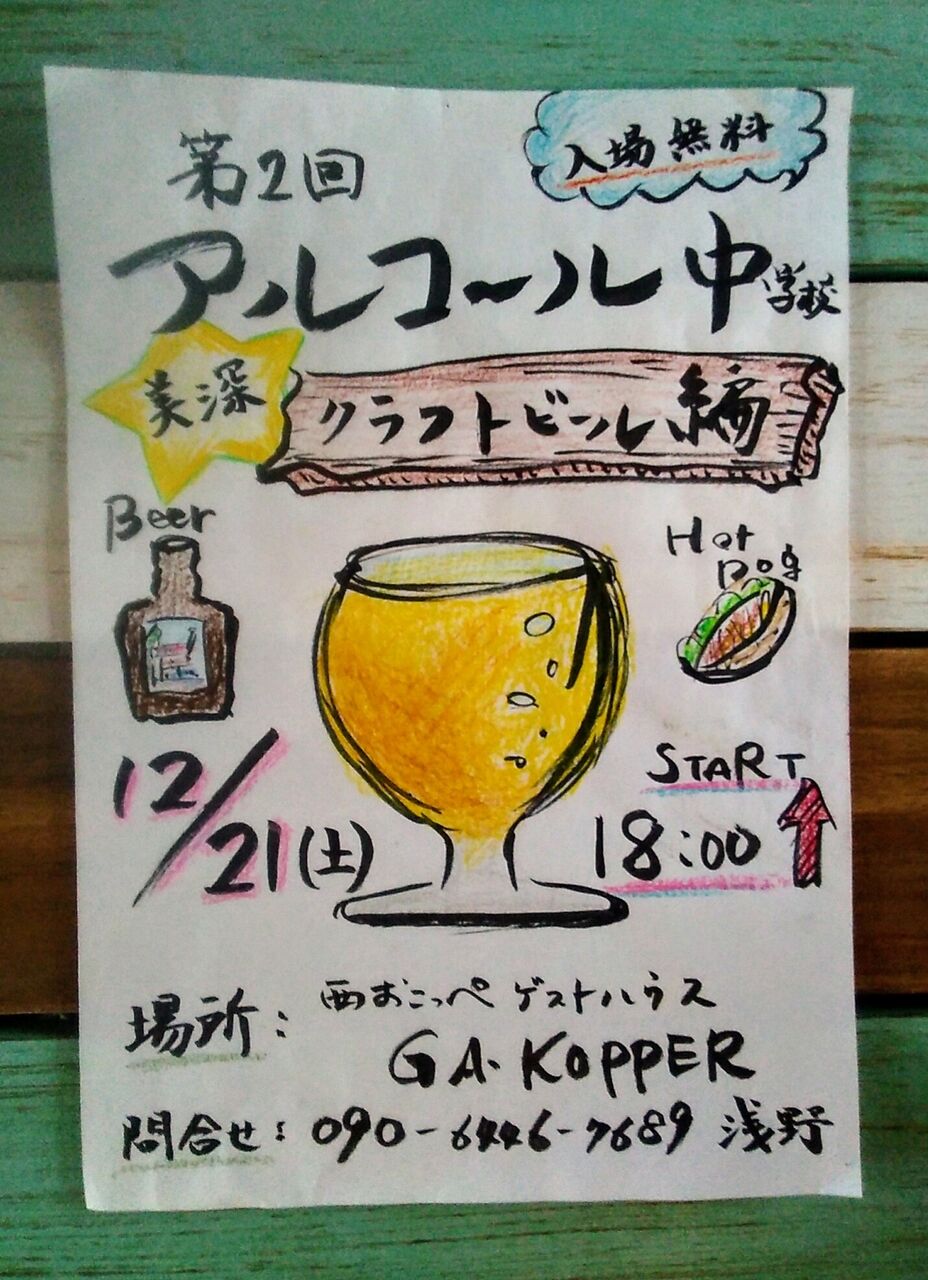 入場無料
第2回
アルコール中学校
美深
クラフトビール編
Beer
Hot
Dog
START
12/21(土)
18:00
場所:西おこっぺゲストハウス
GA.KOPPER
問合せ:090-6446-7689 浅野